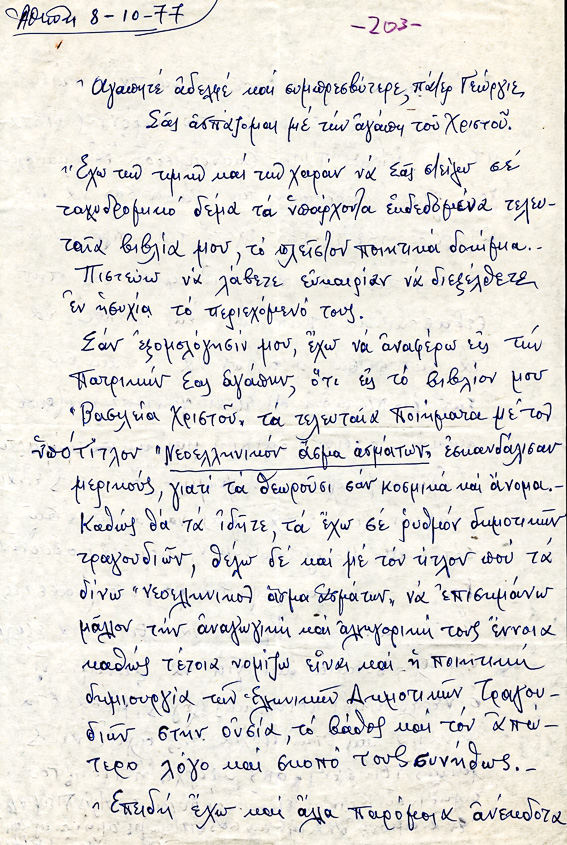 Ἀθῆναι 8-10-77
-203-
Ἀγαπητέ ἀδελφέ καί συμπρεσβύτερε, πάτερ Γεώργιε,
Σᾶς ἀσπάζομαι μέ τήν ἀγάπη τοῦ Χριστοῦ.
Ἔχω τήν τιμήν καί τήν χαράν νά Σᾶς στείλω σέ
ταχυδρομικό δέμα τά ὑπάρχοντα ἐκδεδομένα τελευ-
ταῖα βιβλία μου, τό πλεῖστον ποιητικά δοκίμια.-
Πιστεύω νά λάβετε εὐκαιρίαν νά διεξέλθετε
ἐν ἡσυχίᾳ τό περιεχόμενό τους.
Σάν ἐξομολόγησίν μου, ἔχω νά ἀναφέρω εἰς τήν
Πατρικήν Σας ἀγάπην, ὅτι εἰς τό βιβλίον μου
"Βασιλεία Χριστοῦ" τά τελευταῖα ποιήματα μέ τόν
ὑπότιτλον "Νεοελληνικόν ᾆσμα ᾀσμάτων" ἐσκανδάλισαν
μερικούς, γιατί τά θεωροῦσι σάν κοσμικά καί ἄνομα.-
Καθώς θά τά ἰδῆτε, τά ἔχω σέ ρυθμόν δημοτικῶν
τραγουδιῶν, θέλω δέ καί μέ τόν τίτλον πού τά
δίνω "νεοελληνικόν ᾆσμα ᾀσμάτων" νά ἐπισημάνω
μᾶλλον τήν ἀναγωγική καί ἀλληγορική τους ἔννοια
καθώς τέτοια νομίζω εἶναι καί ἡ ποιητική
δημιουργία τῶν Ἑλληνικῶν Δημοτικῶν Τραγου-
διῶν στήν οὐσία, τό βάθος καί τόν ἀπώ-
τερο λόγο καί σκοπό τους συνήθως.-
Ἐπειδή ἔχω καί ἄλλα παρόμοια ἀνέκδοτα